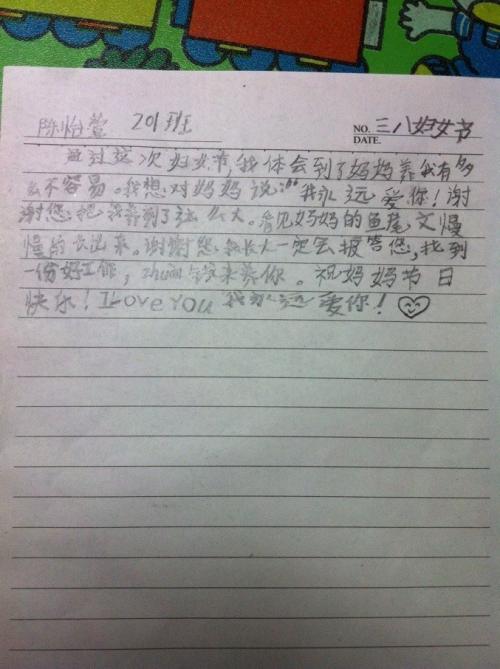 陈怡萱 201班
NO. 三八妇女节
DATE.
通过这次妇女节,我体会到了妈妈养我有多
么不容易。我想对妈妈说:“我永远爱你!谢
谢您把我养到了这么大。看见妈妈的鱼尾文慢
慢的长出来。谢谢您我长大一定会报答您,找到
一份好工作,zhuan钱来养你。祝妈妈节日
快乐!I Love YOU 我永远爱你!